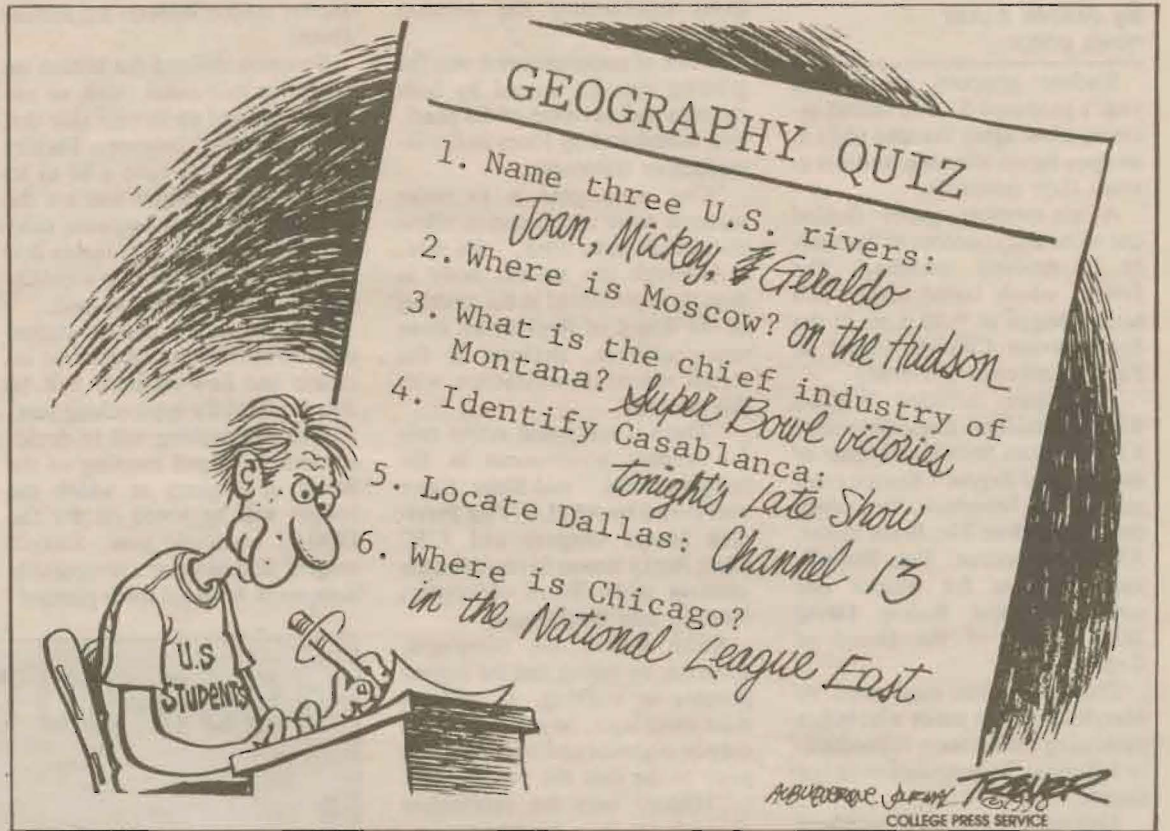 GEOGRAPHY QUIZ
1. Name three U.S. rivers:
Joan, Mickey, & Geraldo
2. Where is Moscow? on the Hudson
3. What is the chief industry of
Montana? Super Bowl victories
4. Identify Casablanca:
tonight's Late Show
5. Locate Dallas: Channel 13
6. Where is Chicago?
in the National League East
U.S
STUDENTS
ALBUQUERQUE JOURNAL TREVER
©1990
COLLEGE PRESS SERVICE